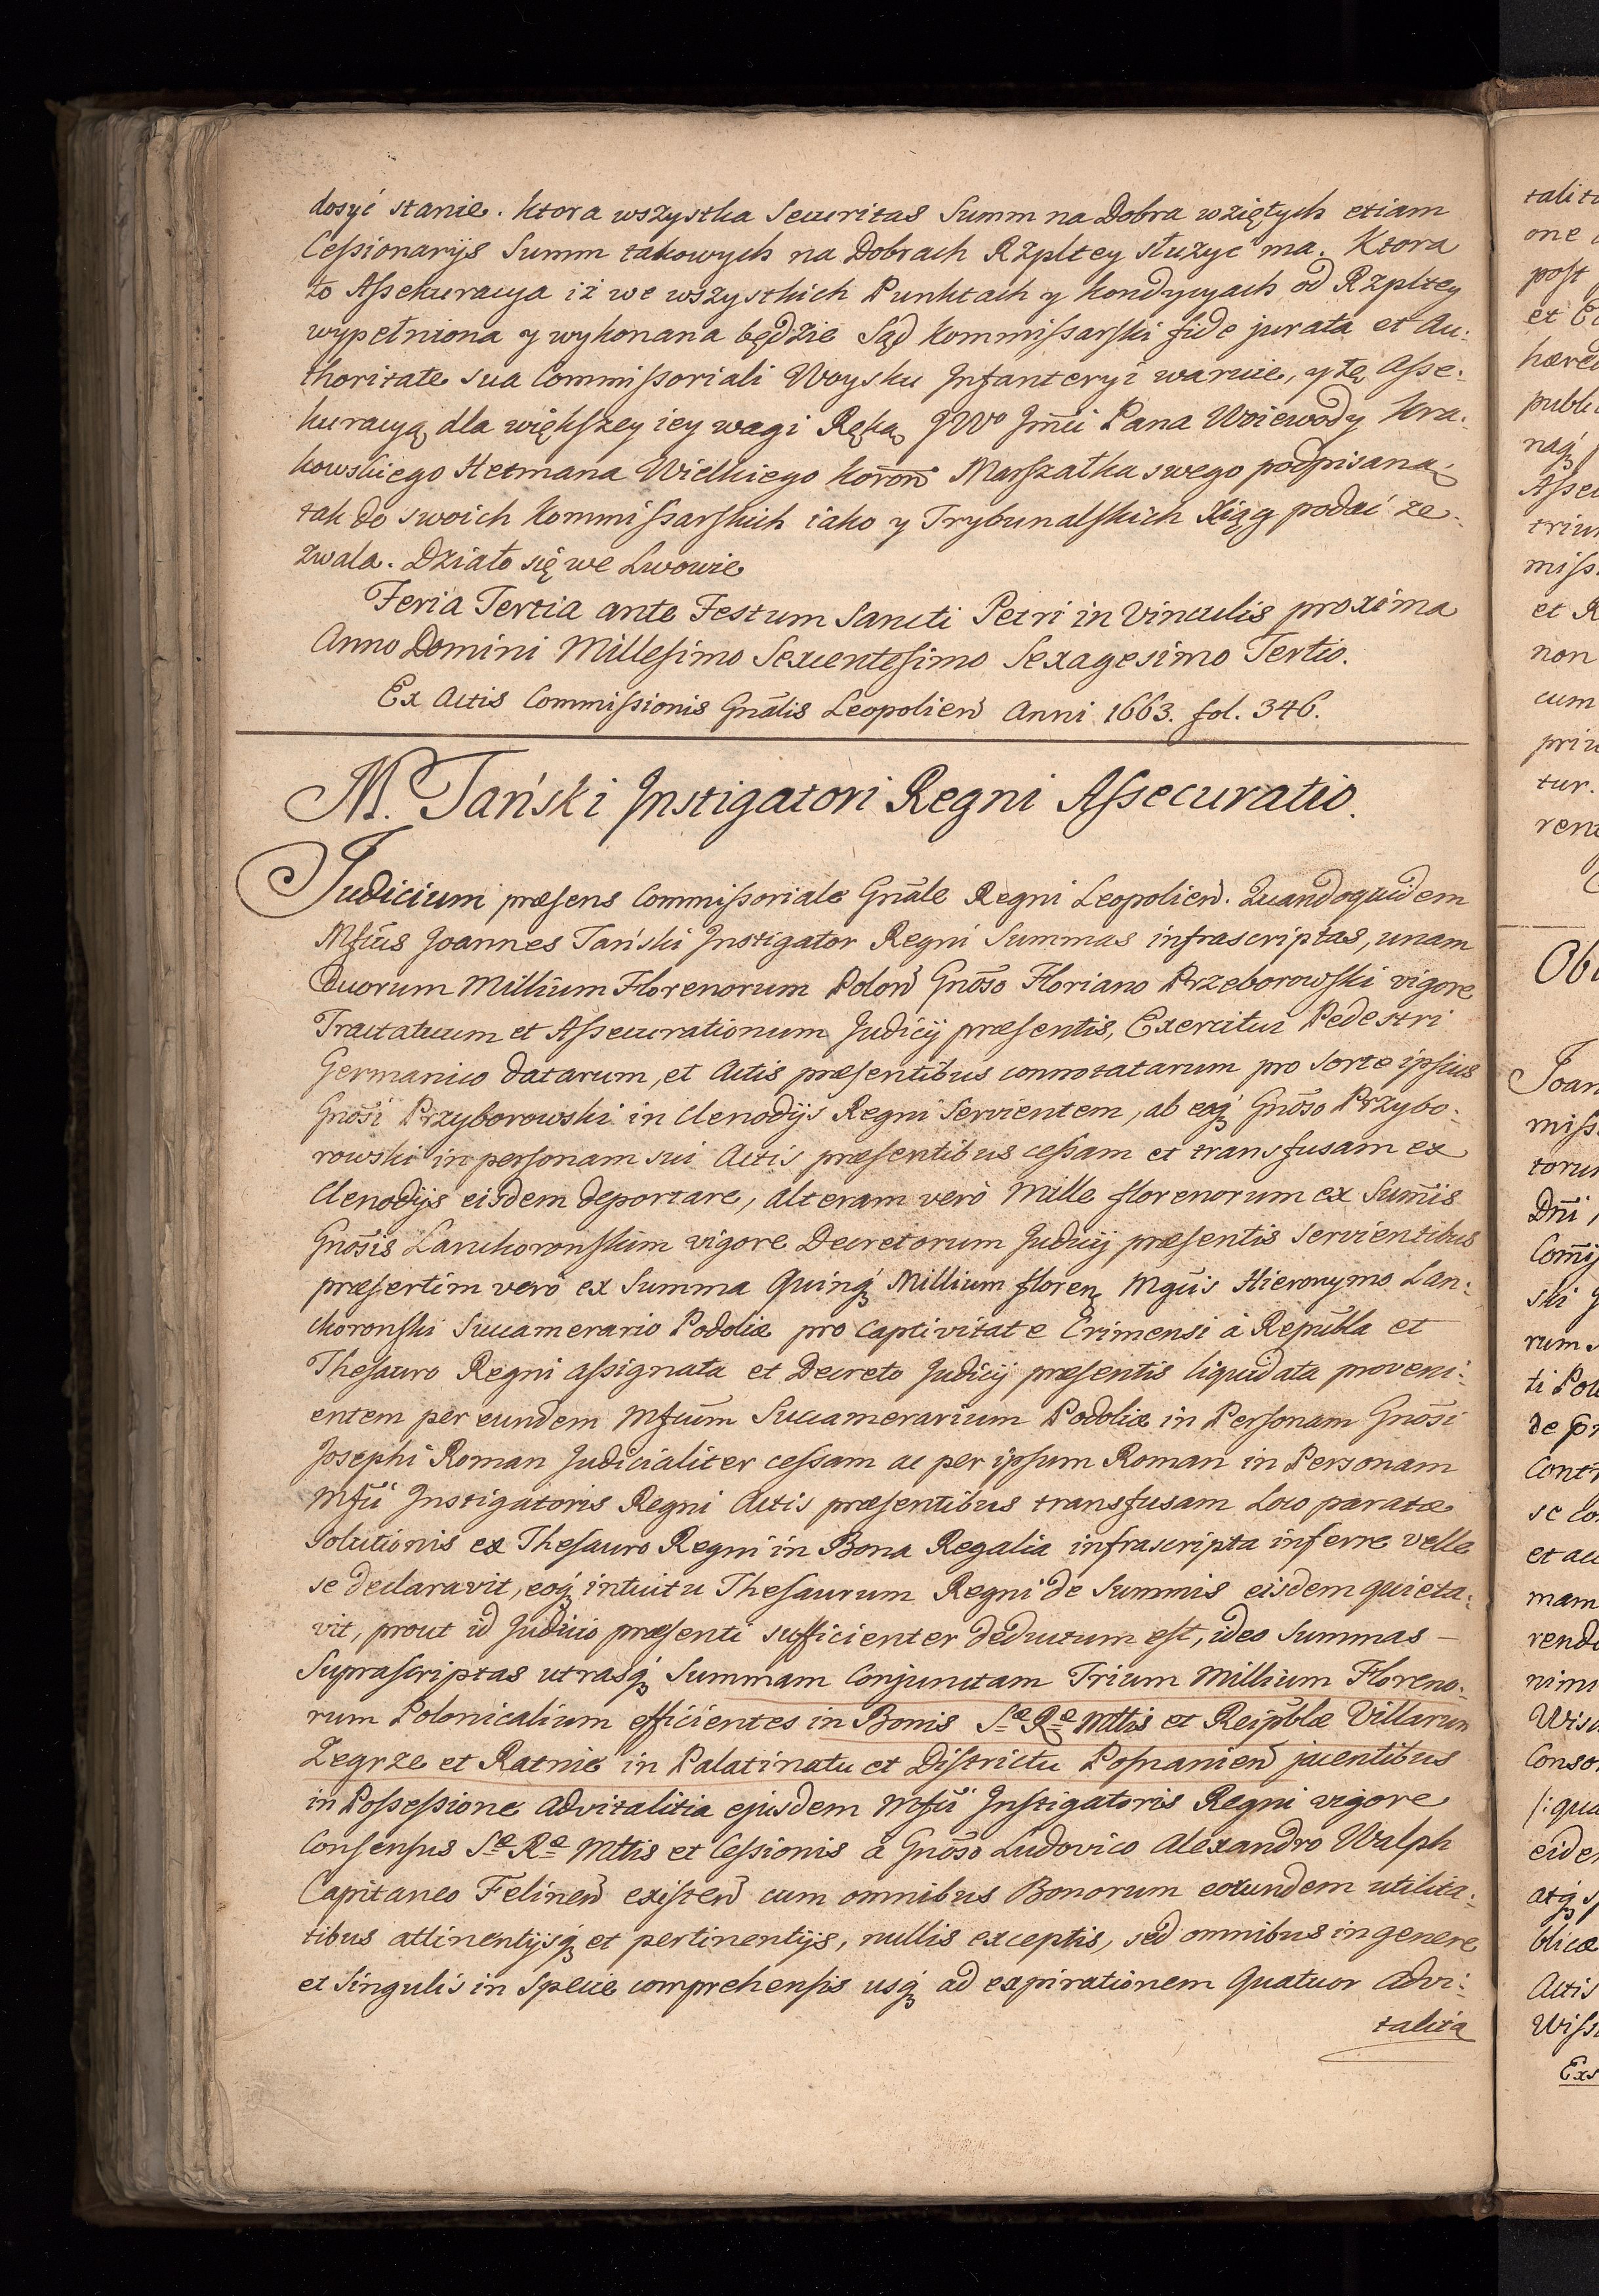 dosyć stanie. Ktora wszystka Securitas Summ na Dobra wziętych etiam
Cessionarijs Summ takowych na Dobrach Rzpltey służyc ma. Ktora
to Assekuracya iż we wszystkich Punktach y Kondycyach od Rzpltey
wypełniona y wykonana będzie Sąd Kommissarski fide jurata et Au:
thoritate sua Commissoriali Woysku Infanteryi waruie, y tę Asse:
kuracyą dla większey iey wagi Ręką JWo Jmci Pana Woiewody Kra:
kowskiego Hetmana Wielkiego Koron̄ Marszałka swego podpisaną
tak do swoich Kommissarskich iako y Trybunalskich Xiąg podać ze:
zwala. Działo się we Lwowie
Feria Tertia ante Festum Sancti Petri in Vinculis proxima
Anno Domini Millesimo Sexcentesimo Sexagesimo Tertio.
Ex Actis Commissionis Gnālis Leopolien̄ Anni 1663. fol. 346.
M. Tański Instigatori Regni Assecuratio.
Judicium præsens Commissoriale Gnāle Regni Leopolien̄. Quandoquidem
Mfcus Joannes Tański Instigator Regni Summas infrascriptas, unam
Duorum Millium Florenorum Polon̄ Gnōso Floriano Przeborowski vigore
Tractatuum et Assecurationum Judicij præsentis, Exercitui Pedestri
Germanico datarum, et Actis præsentibus connotatarum pro Sorte ipsius
Gnōsi Przyborowski in Clenodijs Regni Servientem, ab eoq́ʒ Gnōso Przybo:
rowski in personam sui Actis præsentibus cessam et transfusam ex
Clenodijs eisdem deportare, alteram verò Mille florenorum ex Sum̄is
Gnōsis Lanckoronskim vigore Decretorum Judicij præsentis Servientibus
præsertim verò ex Summa Quinq́ʒ Millium floren̨ Mgcis Hieronymo Lan:
ckoronski Succamerario Podoliæ pro Captivitate Crimensi à Repub̄la et
Thesauro Regni assignata et Decreto Judicij præsentis liquidata proveni:
entem per eundem Mfcum Succamerarium Podoliæ in Personam Gnōsi
Josephi Roman Judicialiter cessam ac per ipsum Roman in Personam
Mfci Instigatoris Regni Actis præsentibus transfusam Loco paratæ
Solutionis ex Thesauro Regni in Bona Regalia infrascripta inferre velle
se declaravit, eoq́ʒ intuitu Thesaurum Regni de Summis eisdem quieta:
vit, prout id Judicio præsenti sufficienter deductum est, ideo Summas –
Suprascriptas utrasq́ʒ Summam Conjunctam Trium Millium Floreno:
rum Polonicalium efficientes in Bonis Sæ Ræ Mttis et Reipb̄læ Villarum
Zegrze et Ratnie in Palatinatu et Districtu Posnanien̄ jacentibus
in Possessione advitalitia ejusdem Mfci Instigatoris Regni vigore
Consensus Sæ Ræ Mttis et Cessionis à Gnōso Ludovico Alexandro Walph
Capitaneo Felinen̄ existen̄ cum omnibus Bonorum eorundem utilita:
tibus attinentijsq́ʒ et pertinentijs, nullis exceptis, sed omnibus in genere
et Singulis in Specie comprehensis usq́ʒ ad expirationem Quatuor Advi:
talita